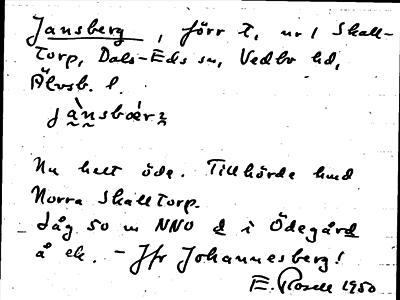 Jansberg, förr t, nr 1 Skall-
torp, Dals-Eds sn, Vedbo hd,
Älvsb. l.
jànsbær
Nu helt öde. Tillhörde hmd
Norra Skalltorp.
Låg 50 m NNO d i Ödegård
å ek. – Jfr Johannesberg!
E. Rosell 1950